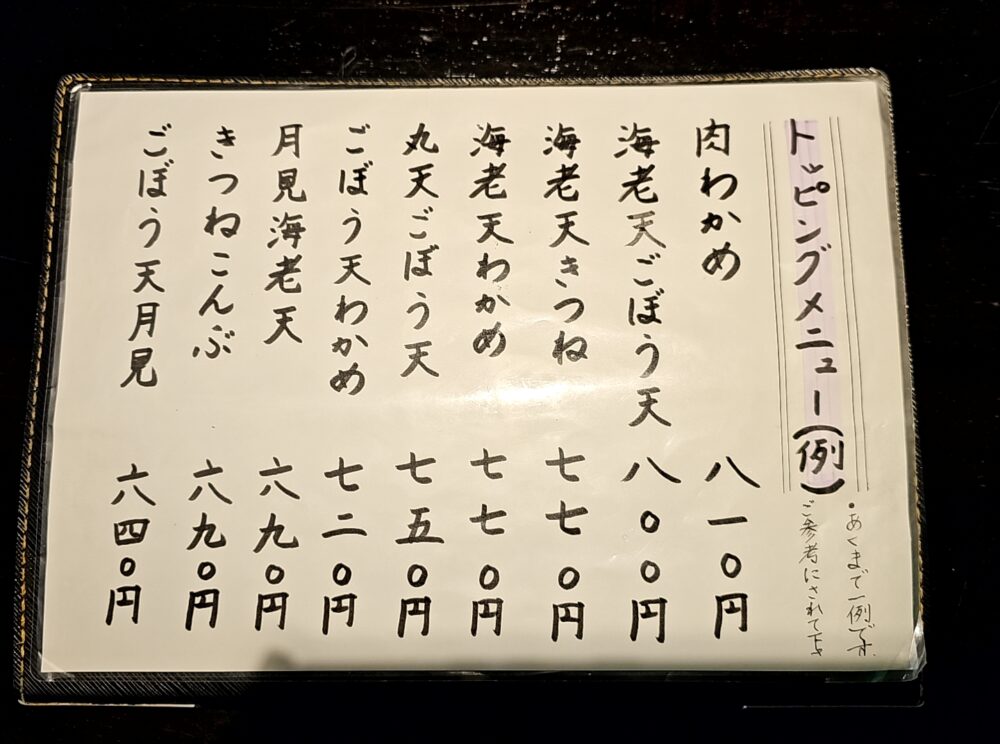 トッピングメニュー(例)
・あくまで一例です。
ご参考にされて下さ
肉わかめ 八一〇円
海老天ごぼう天 八〇〇円
海老天きつね 七七〇円
海老天わかめ 七七〇円
丸天ごぼう天 七五〇円
ごぼう天わかめ 七二〇円
月見海老天 六九〇円
きつねこんぶ 六九〇円
ごぼう天月見 六四〇円